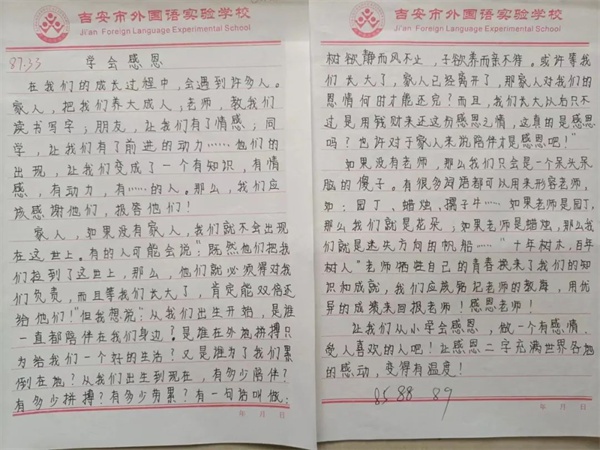 吉安市外国语实验学校
Ji'an Foreign Language Experimental School
87.33
学会感恩
在我们的成长过程中,会遇到许多人。
家人,把我们养大成人;老师,教我们
读书写字;朋友,让我们有了情感;同
学,让我们有了前进的动力……他们的
出现,让我们变成了一个有知识,有情
感,有动力,有……的人。那么,我们应
该感谢他们,报答他们!
家人,如果没有家人,我们就不会出现
在这世上。有的人可能会说:“既然他们把我
们拉到了这世上,那么,他们就必须得对我
们负责,而且等我们长大了,肯定能双倍还
给他们!”但我想说:从我们出生开始,是谁
一直都陪伴在我们身边?是谁在外地拼搏只
为给我们一个好的生活?又是谁为了我们累
倒在地?从我们出生到现在,有多少陪伴?
有多少拼搏?有多少劳累?有一句话叫做:
年 月 日
吉安市外国语实验学校
Ji'an Foreign Language Experimental School
树欲静而风不止,子欲养而亲不待。或许等我
们长大了,家人已经离开了,那家人对我们的
恩情何时才能还完?而且,我们长大以后只不
过是用钱财来还这份感恩之情,这真的是感恩
吗?也许对于家人来说陪伴才是感恩吧!
如果没有老师,那么我们只会是一个呆头呆
脑的傻子。有很多词语都可以用来形容老师,
如:园丁、蜡烛、孺子牛……如果老师是园丁,
那么我们就是花朵;如果老师是蜡烛,那么我
们就是迷失方向的帆船……“十年树木,百年
树人”老师牺牲自己的青春换来了我们的知
识和成就,我们应该铭记老师的教诲,用优
异的成绩来回报老师!感恩老师!
让我们从小学会感恩,做一个有感情,
受人喜欢的人吧!让感恩二字充满世界各地
的感动,变得有温度!
85 88 89
年 月 日